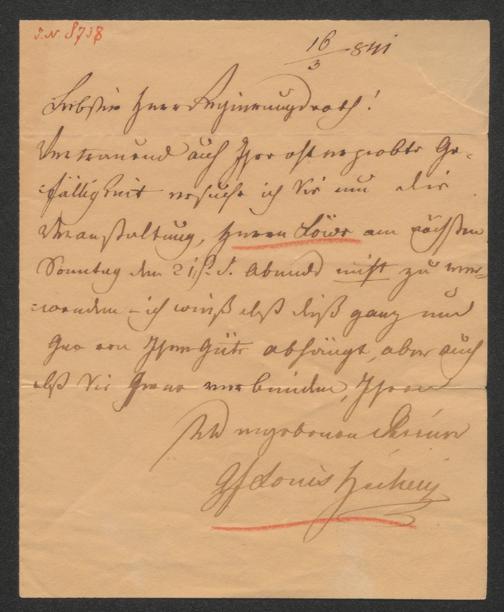 J.N. 8738
16/3 841
Liebster Herr Regierungsrath!
Vertrauend auf Ihre oft erprobte Ge-
fälligkeit ersuche ich Sie um die
Veranstaltung, Herrn Löwe am nächsten
Sonntag den 21 d. Abends nicht zu ver-
wenden – ich weiß daß dieß ganz und
gar von Ihrer Güte abhängt, aber auch
daß Sie gerne verbinden, Ihren
ergebenen Diener
Gf Louis